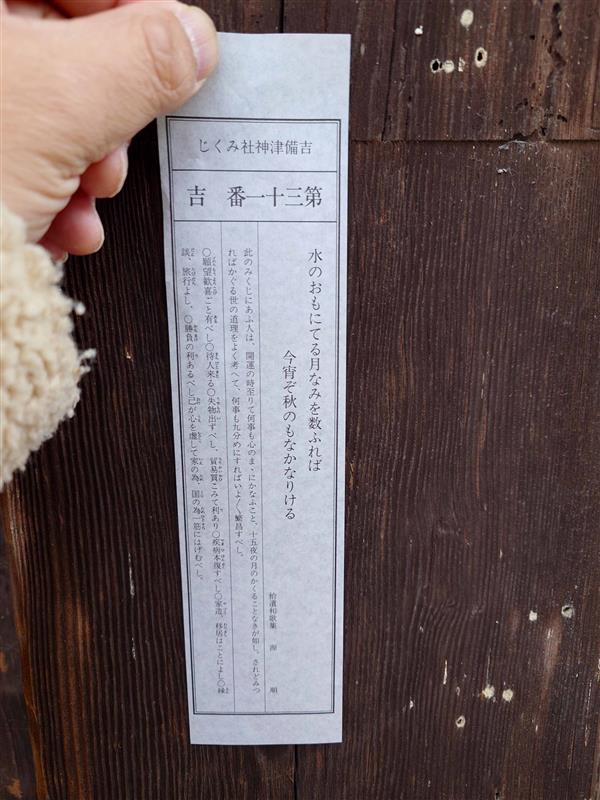 吉備津神社みくじ
第三十一番　吉
水のおもにてる月なみを数ふれば
今宵ぞ秋のもなかなりける
拾遺和歌集　源　順
此のみくじにあふ人は、開運の時至りて何事も心のまゝにかなふこと、十五夜の月のかくることなきが如し、されどみつ
ればかくる世の道理をよく考へて、何事も九分めにすればいよ〳〵繁昌すべし。
〇願望歓喜ごと有べし〇待人来る〇失物出ずべし、貿易買こみて利あり〇疾病本復すべし〇家造、移居はことによし〇縁
談、旅行よし、〇勝負の利あるべし己が心を虚して家の為、国の為一筋にはげむべし。